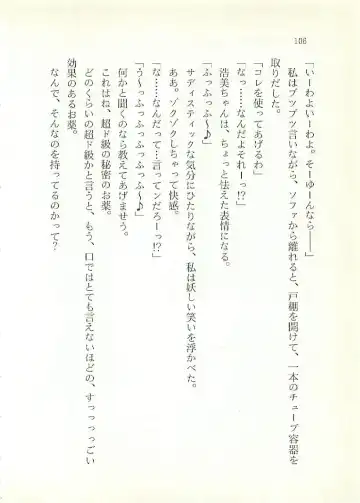 106
「いーわよいーわよ。そーゆーんなら――」
私はブツブツ言いながら、ソファから離れると、戸棚を開けて、一本のチューブ容器を
取りだした。
「コレを使ってあげるわ」
「なっ……なんだよそれーっ!?」
浩美ちゃんは、ちょっと怯えた表情になる。
「ふっふっふ〜♪」
サディスティックな気分にひたりながら、私は妖しい笑いを浮かべた。
ああ。ゾクゾクしちゃって快感。
「な……なんだって…言ってンだろーっ!?」
「う〜っふっふっふっふっふ〜♪」
何かと聞くのなら教えてあげませう。
これはね、超ド級の秘密のお薬。
どのくらいの超ド級かと言うと、もう、口ではとても言えないほどの、すっっっっごい
効果のあるお薬。
なんで、そんなのを持ってるのかって？